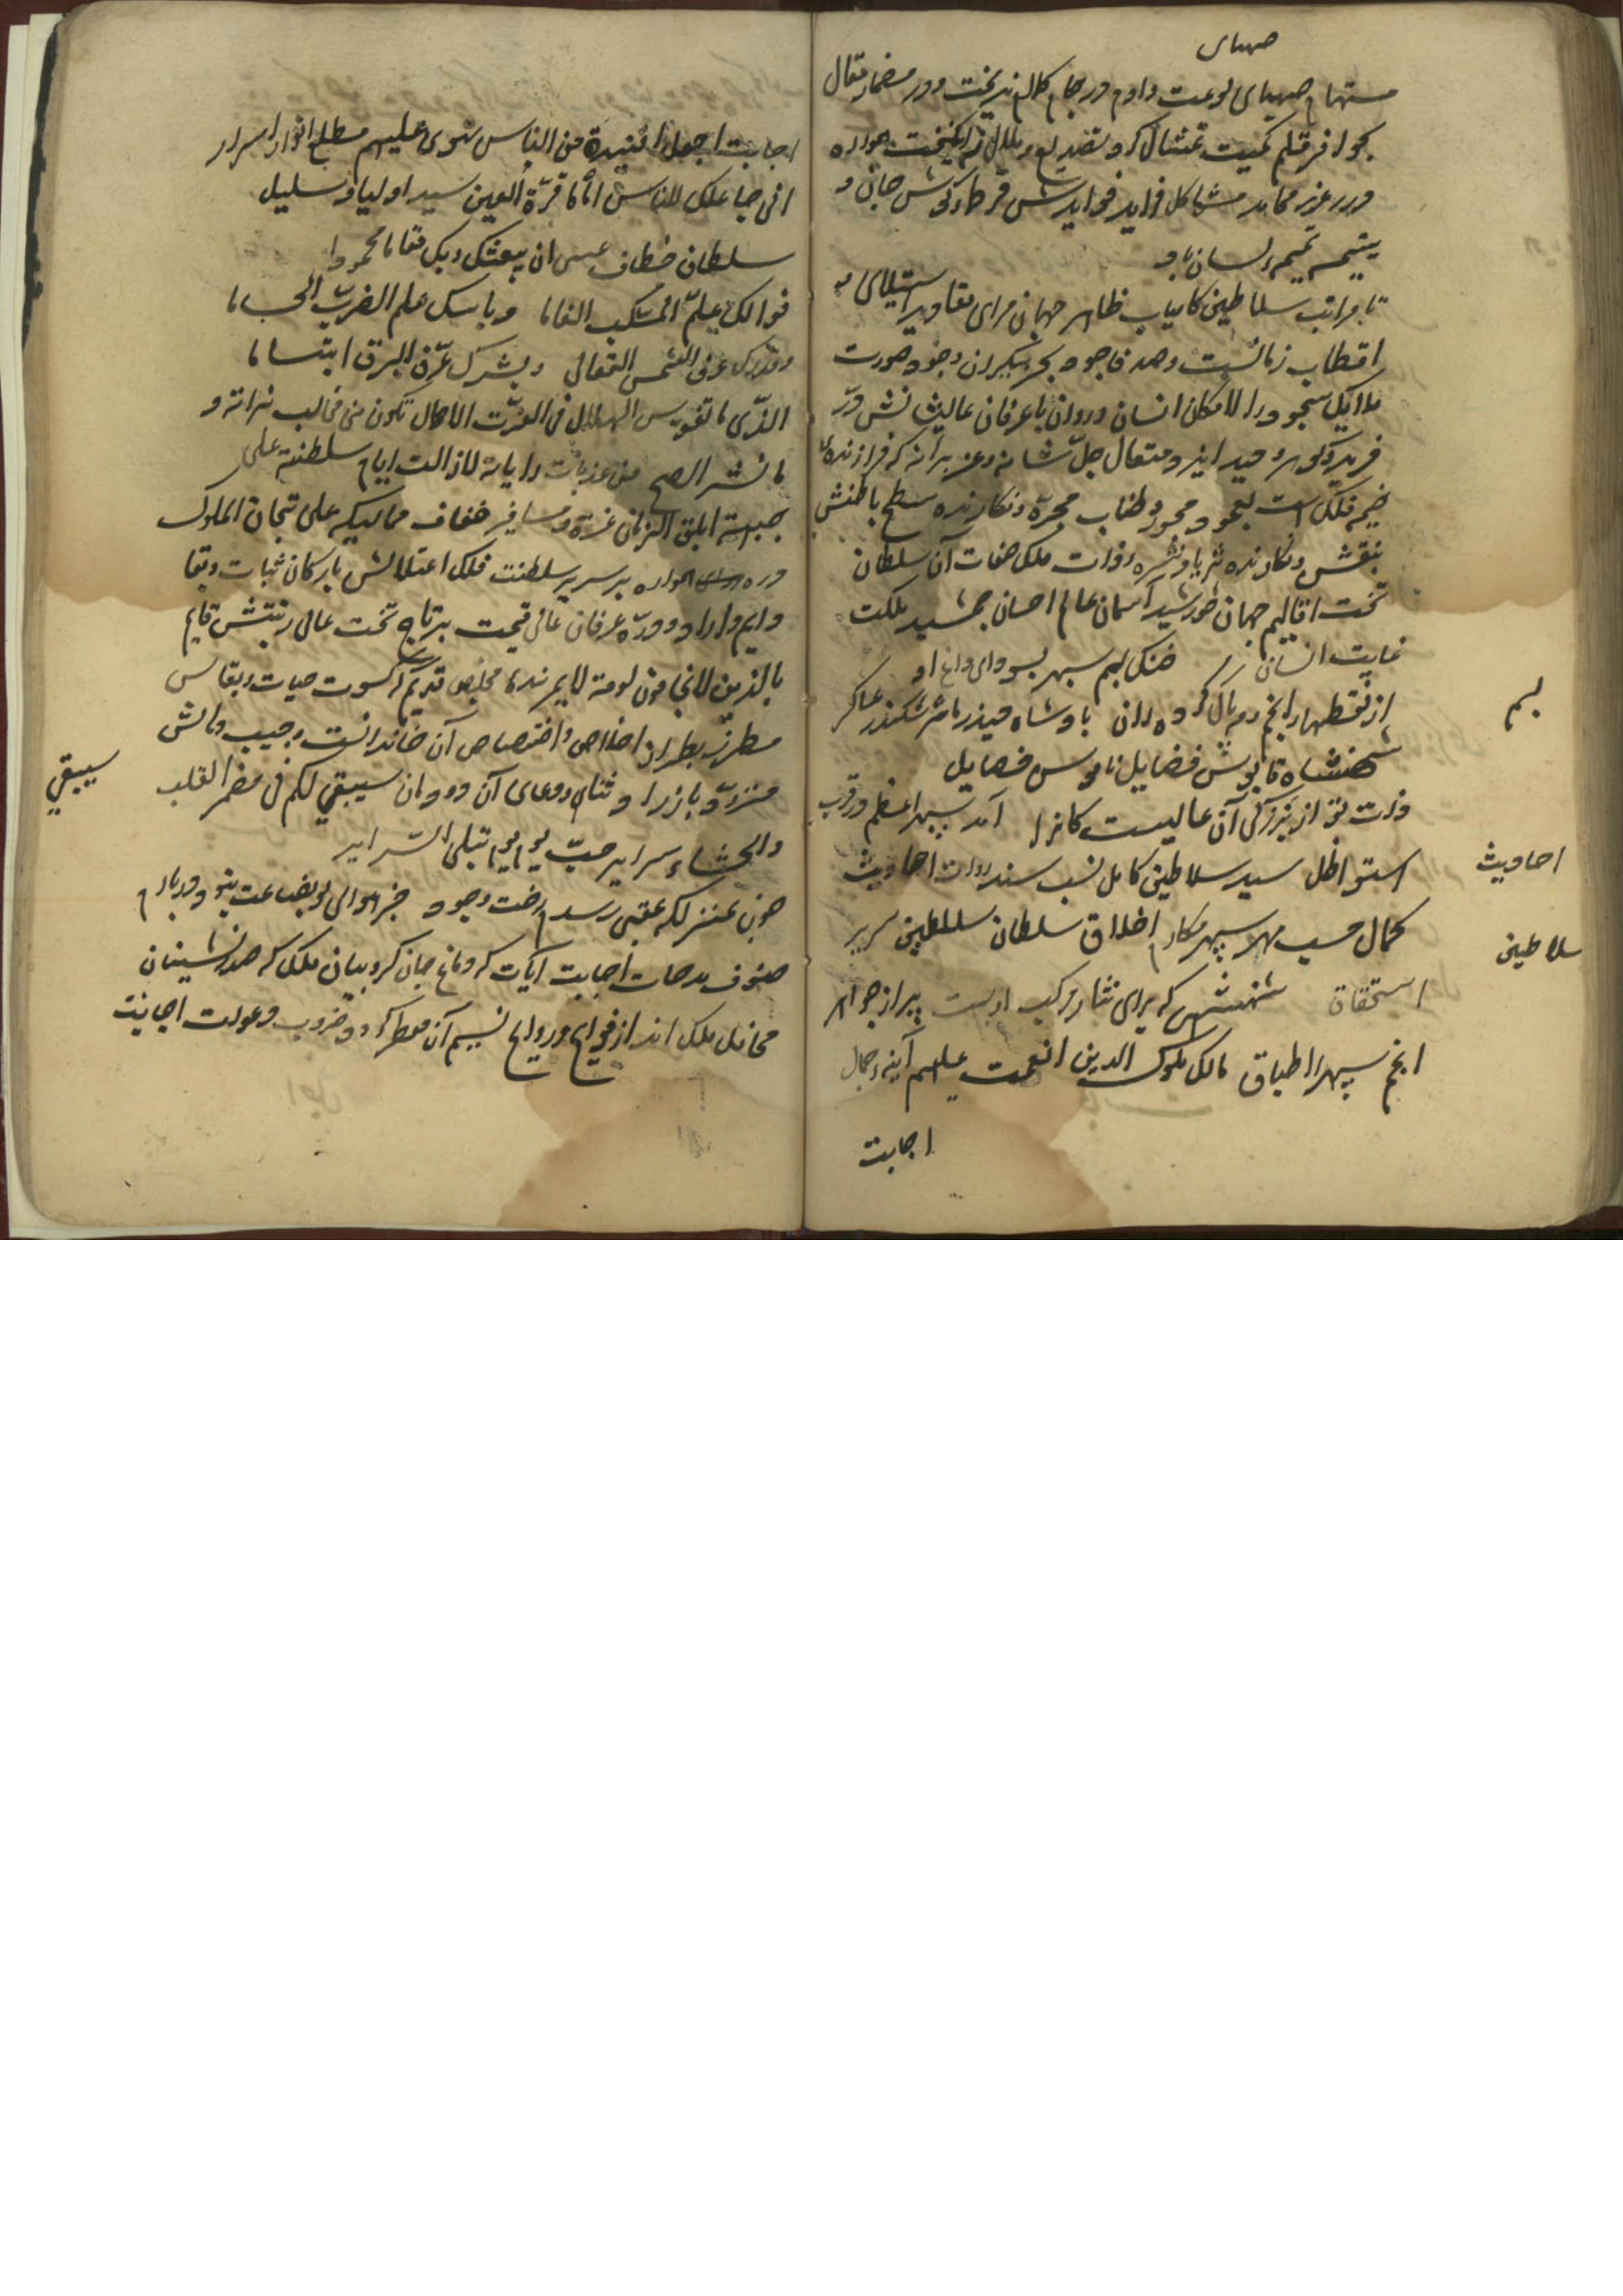 صهبای
مستهام صهبای لوعت دادم در جام کلام نریخت و در مضمار مقال
بجوافر قلم کمیت تمثال کرد تصدیع و ملال نه انگیخت همواره
درر غرر محامد مشاکل فراید فوایدش قرطه گوش جان و
یتیمه تمیمه لسان باد
تا مراتب سلاطین کامیاب ظاهر جهان مرای مقادیر استیلای
اقطاب زمانست و صدف جود بحر بیکران وجود صورت
ملایک سجود را لامکان انسان و روان با عرفان عالیشانش در
فرید گوهر وحید ایزد متعال جل شانه و عز برهانه که فرازنده
خیمه فلک است بعمود محور و طناب مجره و نگارنده سطح باطنش
بنقش و نگارنده ثریا و نثره ذات ملک صفات آن سلطان
تخت اقالیم جهان خورشید آسمان عالم احسان جمشید ملکت
غایت انسان خنکی لبم سپهر بسودای داغ او
لبم
از نقطهاء انجم دم بال کرده ران پادشاه حیدر ناشر سکندر عساکر
شهنشاه قابوس فضایل ناموس خصایل
ذات تو از بزرگی آن عالیست کانرا آمد سپهر اعظم در قرب
استوا ظل سید سلاطین کامل نسب سند روات احادیث
احادیث
کمال حسب مهر سپهر مکارم اخلاق سلطان سلاطین سریر
سلاطین
استحقاق شهنشهی که برای نثار موکب اوست پر از جواهر
انجم سپهر را اطباق مالک ملوک الذین انعمت علیهم آینه جمال
اجابت
اجابت اجعل افئیدة من الناس تهوی علیهم مطلع انوار اسرار
انی جاعلک للناس اماما قرّة العین سید اولیا و سلیل
سلطان خطاب عسی ان یبعثک ربک مقاما محمودا
نوالک یعلّم السکب الغماما و باسک علم الضرب الحساما
و بشرک عرّف البرق ابتساما
الذی ما تقوس الهلال فی الغرّت الا حال تکون من مخالب
ما نشر الصبح من عذبات رایاته لازالت ایام سلطنته علی
جبهة ابلق الزمان غرة و مسافر خفاف ممالیکه علی تیجان الملوک
دره همواره بر سریر سلطنت فلک اعتلایش بارکان ثبات و بقا
دایم دارا و دره عرفان عالی قیمت بر تاج تخت عالی رتبتش قایم
بالذین لا یخافون لومة لایم بنده مخلص قدیم که کسوت حیات و بقاس
مطرز بطراز اخلاص و اختصاص آن خاندانست و جیب دانش
مزرد بازرار و ثنای و دعای آن دودمان سیبقی لکم فی مضمر القلب
سیبقی
والحشاء سرایر حب یوم یوم تبلی السرایر
چون بمنزلکه عقبی رسدم رخت وجود جز هوای تو بضاعت نبود در بارم
صنوف مدحات اجابت آیات که دماغ جان کروبیان ملک که صدرنشینان
محافل ملک اند از فوایح و روایح نسیم آن معطر کردد و ضروب دعوات اجابت